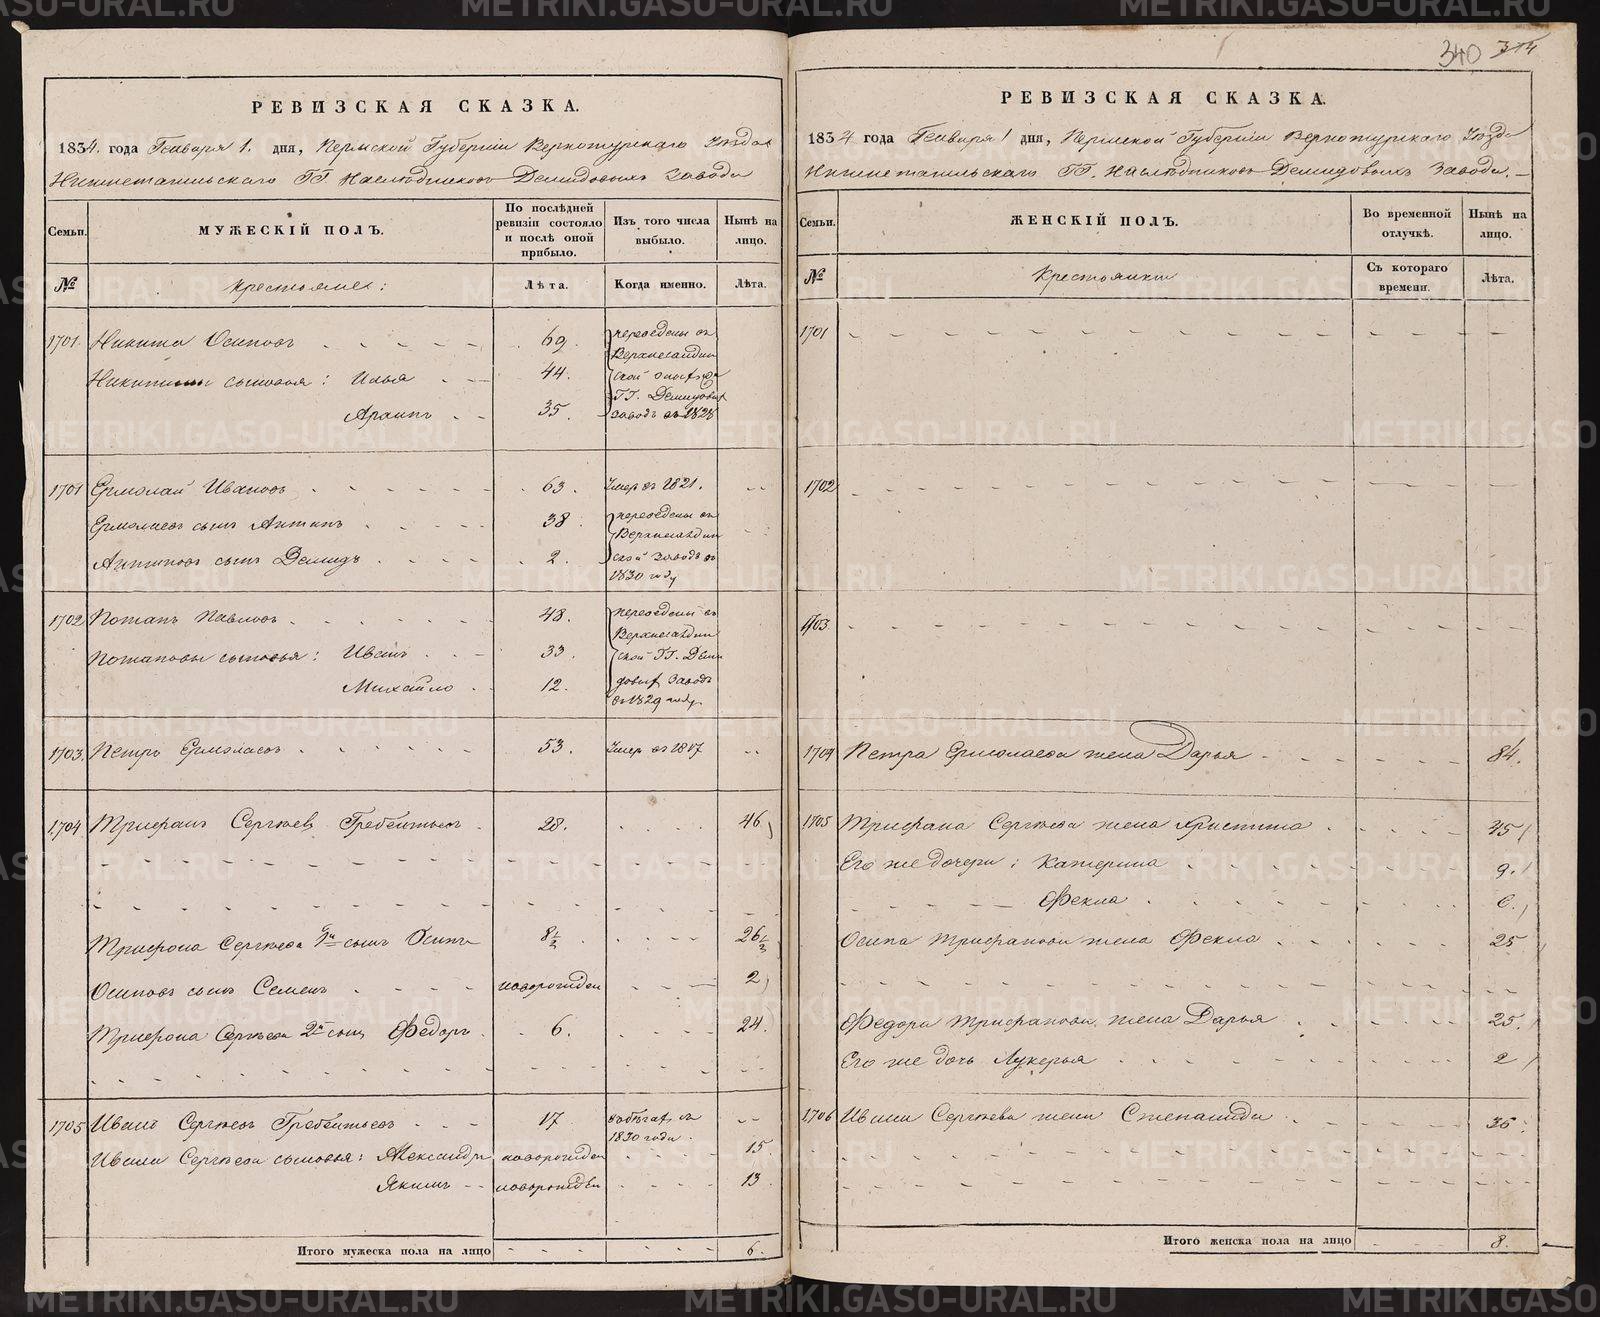 340 314
РЕВИЗСКАЯ СКАЗКА.
1834. года Генваря 1. дня, Пермской Губернiи Верхотурскаго Уѣзда
Нижнетагильскаго ГГ. Наслѣдниковъ Демидовыхъ завода
Семьи.
МУЖЕСКІЙ ПОЛЪ.
По послѣдней ревизіи состояло и послѣ оной прибыло.
Изъ того числа выбыло.
Нынѣ на лицо.
№
Крестьяне:
Лѣта.
Когда именно.
Лѣта.
1701. Никита Осиповъ 69. переведены въ
Верхнесалдин
Никитины сыновья: Илья 44. ской
ГГ. Демидовых
Архипъ 35. заводъ въ 1828
1701 Ермолай Ивановъ 63. Умеръ въ 1821.
Ермолаевъ сынъ Антипъ 38. переведены въ
Верхнесалдин
Антиповъ сынъ Демидъ 2. ской заводъ въ
1830 году
1702 Потапъ Павловъ 48. переведены въ
Верхнесалдин
Потаповы сыновья: Иванъ 33. ской ГГ. Деми
Михайло 12. довых заводъ
въ 1829 году
1703. Петръ Ермолаевъ 53. Умеръ въ 1817
1704 Трифанъ Сергѣевъ Гребеньковъ 28. 46
Трифона Сергѣева 1й сынъ Осипъ 8½ 26½
Осиповъ сынъ Семенъ новорожден 2
Трифона Сергѣева 2й сынъ Федоръ 6. 24.
1705 Иванъ Сергѣевъ Гребеньковъ 17 въ бѣгахъ съ
1830 года.
Ивана Сергѣева сыновья: Александръ новорожден 15.
Якимъ новорожден 13
Итого мужеска пола на лицо 6.
РЕВИЗСКАЯ СКАЗКА.
1834 года Генваря 1 дня, Пермской Губернiи Верхотурскаго Уѣзда
Нижнетагильскаго ГГ. Наслѣдниковъ Демидовыхъ завода.
Семьи.
ЖЕНСКІЙ ПОЛЪ.
Во временной отлучкѣ.
Нынѣ на лицо.
№
Крестьянки
Съ котораго времени.
Лѣта.
1701
1702
1703
1704 Петра Ермолаева жена Дарья 84.
1705 Трифана Сергѣева жена Христина 45
Его же дочери: Катерина 9.
Фекла 6.
Осипа Трифанова жена Фекла 25
Федора Трифанова жена Дарья 25.
Его же дочь Лукерья 2
1706 Ивана Сергѣева жена Степанида 36.
Итого женска пола на лицо 8.
METRIKI.GASO-URAL.RU